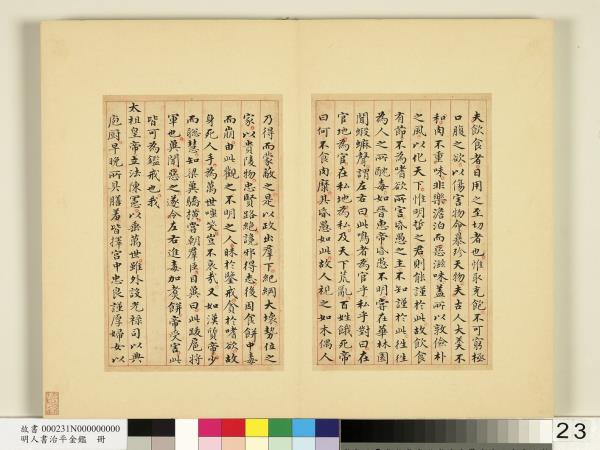 夫飲食者日用之至切者也惟取充飽不可窮極
口腹之欲以傷害物命暴殄天物夫古人大羹不
和肉不重味非樂澹泊而惡滋味蓋所以敦儉朴
之風以化天下惟明哲之君則能謹於此故飲食
有節不為嗜欲所害昏愚之主不知謹於此往往
為人之所酖毒如晉惠帝昏愚不明嘗在華林園
聞蝦蟆聲謂左右曰此鳴者為官乎私乎對曰在
官地為官在私地為私及天下荒亂百姓餓死帝
曰何不食肉糜其昏愚如此故人視之如木偶人
乃得而蒙蔽之是以政出羣下紀綱大壞勢位之
家以貴陵物忠賢路絕讒邪得志後因食餅中毒
而崩由此觀之不明之人昧於鑒戒貪於嗜欲故
身死人手為萬世嗤笑豈不哀哉又如漢質帝少
而聰慧知梁冀驕橫嘗朝羣臣目冀曰此跋扈將
軍也冀聞惡之遂令左右進毒加煮餅帝受害此
皆可為鑑戒也我
太祖皇帝立法陳憲以垂萬世雖外設光祿司以典
庖厨早晚所具膳羞皆擇宮中忠良謹厚婦女以
故書 000231N000000000
明人書治平金鑑 冊
23